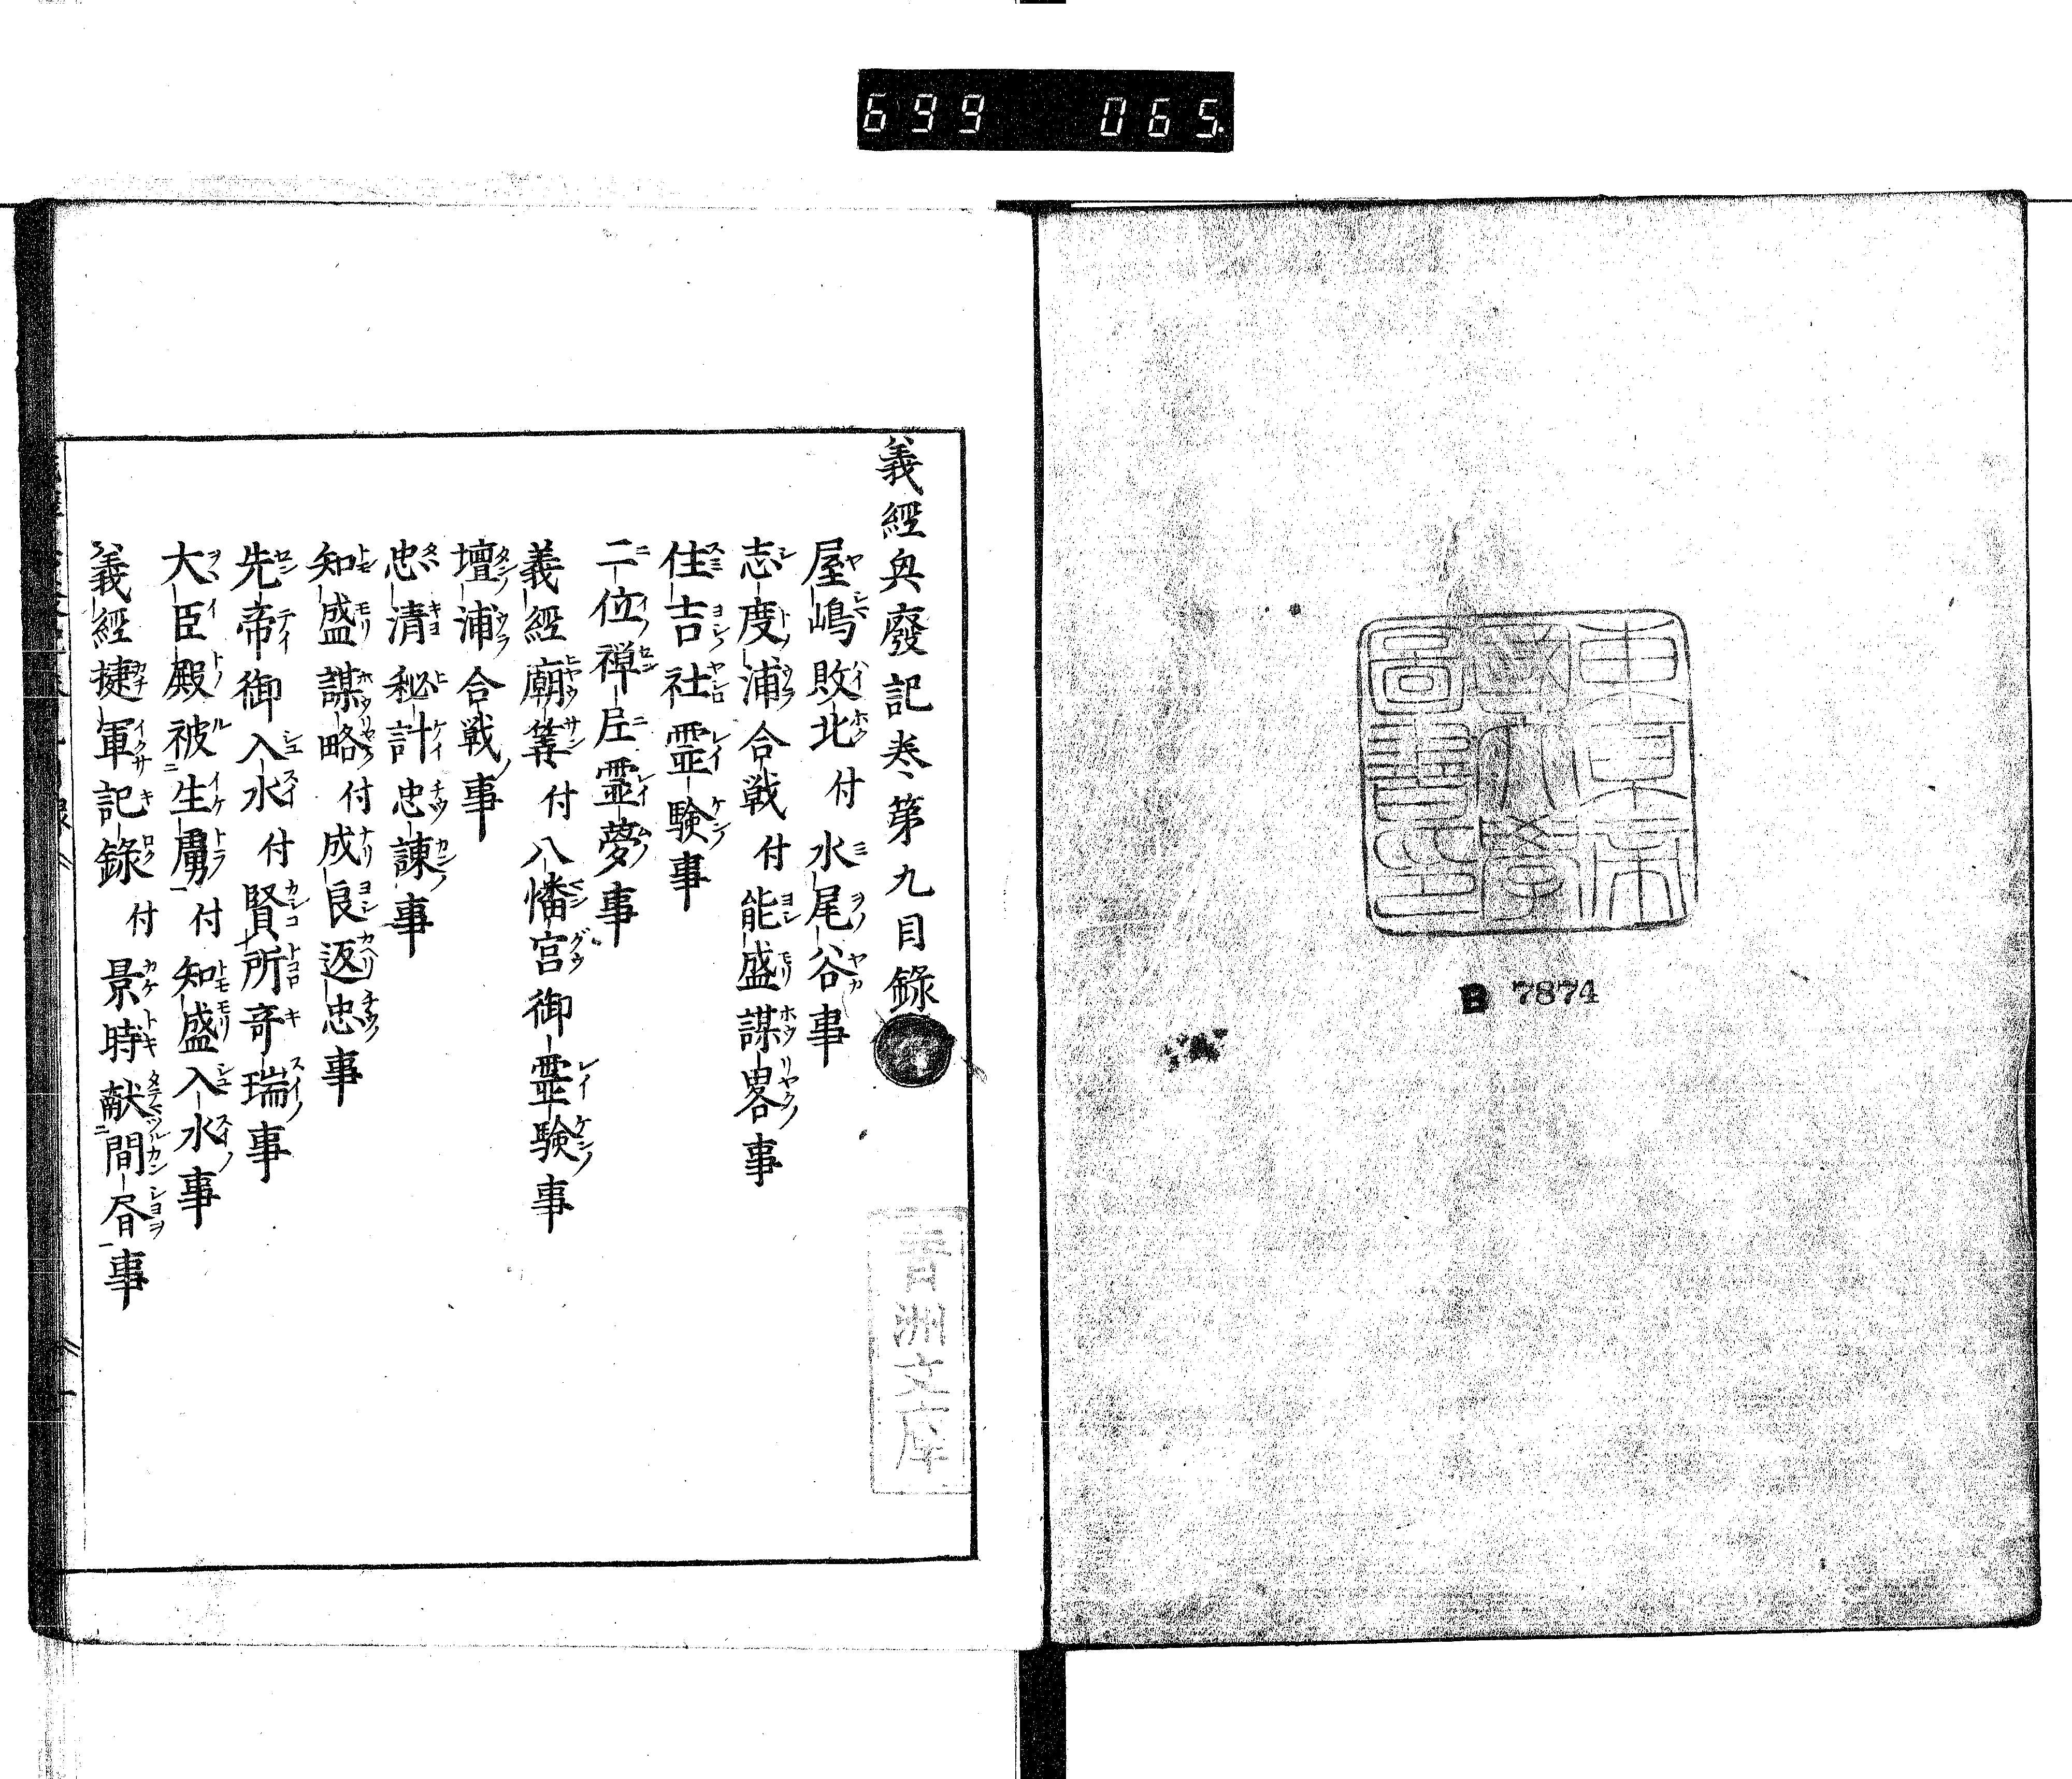 699 065
東京帝
國大學
圖書印
B 7874
義經興廢記巻第九目錄
青洲文庫
屋嶋敗北付水尾谷事
志度浦合戦付能盛謀畧事
住吉社霊験事
二位禅尼霊夢事
義經廟筭付八幡宮御霊験事
壇浦合戦事
忠清秘計忠諌事
知盛謀略付成良返忠事
先帝御入水付賢所奇瑞事
大臣殿被生虜付知盛入水事
義經捷軍記錄付景時献間㫺事